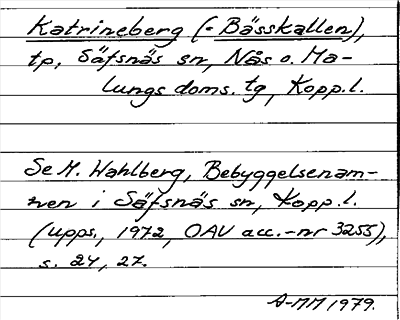 Katrineberg (= Bässkallen),
tp, Säfsnäs sn, Nås o. Ma-
lungs doms. tg, Kopp. l.
Se M. Wahlberg, Bebyggelsenam-
nen i Säfsnäs sn, Kopp. l.
(Upps., 1972, OAU acc.-nr 3255),
s. 24, 27.
A-MM 1979.